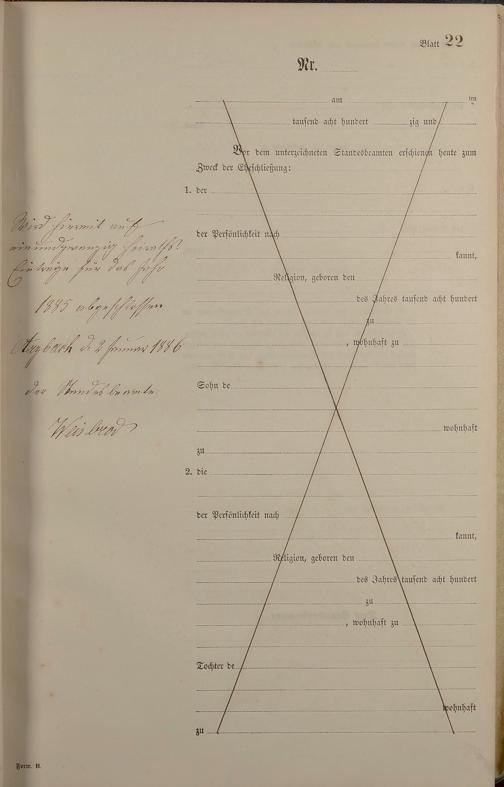 Blatt 22
Nr.
am ten
tausend acht hundert zig und
Vor dem unterzeichneten Standesbeamten erschienen heute zum
Zweck der Eheschließung:
1. der
der Persönlichkeit nach
kannt,
Religion, geboren den
des Jahres tausend acht hundert
zu
, wohnhaft zu
Sohn de
wohnhaft
zu
2. die
der Persönlichkeit nach
kannt,
Religion, geboren den
des Jahres tausend acht hundert
zu
, wohnhaft zu
Tochter de
wohnhaft
zu
Wird hiermit auf
einundzwanzig Heiraths-
Einträge für das Jahr
1885 abgeschlossen
d. 2 Januar 1886
der Standesbeamte.
Weisbrod
Form. B.